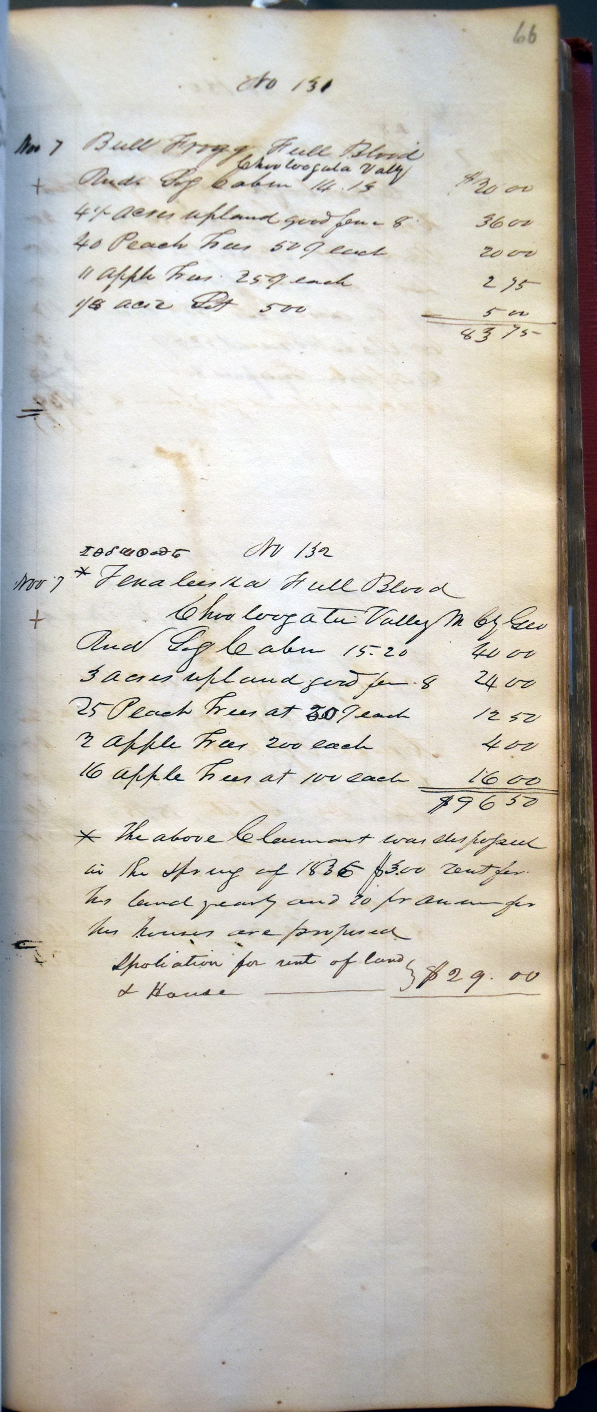 66
No 131
Nov 7 Bull Frogg Full Blood
Choologata Vally
+ Rude Log Cabin 14.15 $20 00
4½ acres upland good fence 8 36 00
40 Peach Trees 50¢ each 20 00
11 apple trees 25¢ each 2 75
1/8 acre Lot 500 5 00
83 75
No 132
Nov 7 * Tenaluska Full Blood
+ Choologatee Valley M Cty Geo
Rude Log Cabin 15.20 40 00
3 acres upland good fen 8 24 00
25 Peach Trees at 50¢ each 12 50
2 apple Trees 200 each 4 00
16 apple Trees at 100 each 16 00
$96 50
* The above Claimant was dispossessed
in the spring of 1836 $3.00 rent for
his land yearly and 20 pr annum for
his houses are proposed
Spoliation for rent of land } $29.00
& House